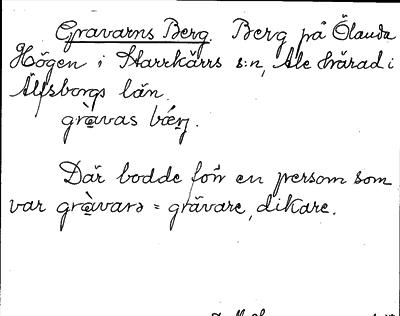 Gravarns Berg. Berg på Ölanda
Högen i Starrkärrs s:n, Ale härad i
Älfsborgs län.
gràvas bǽrj.
Där bodde förr en person som
var gràvarə = grävare, dikare.